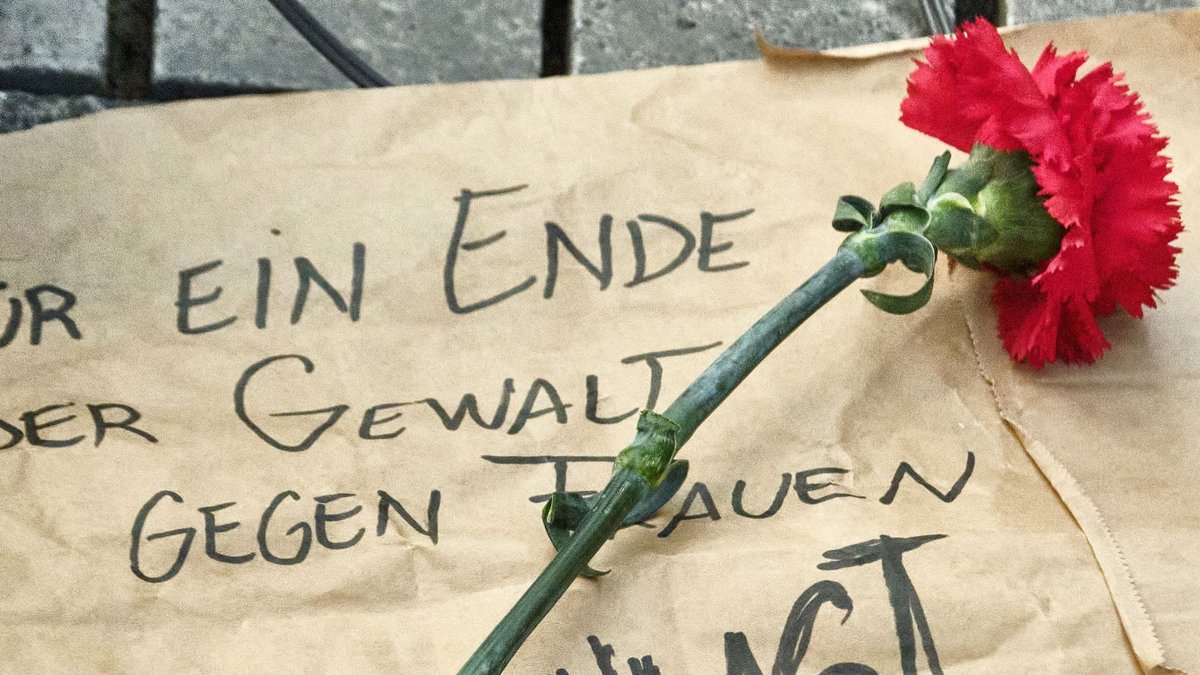 FÜR EIN ENDE
DER GEWALT
GEGEN FRAUEN